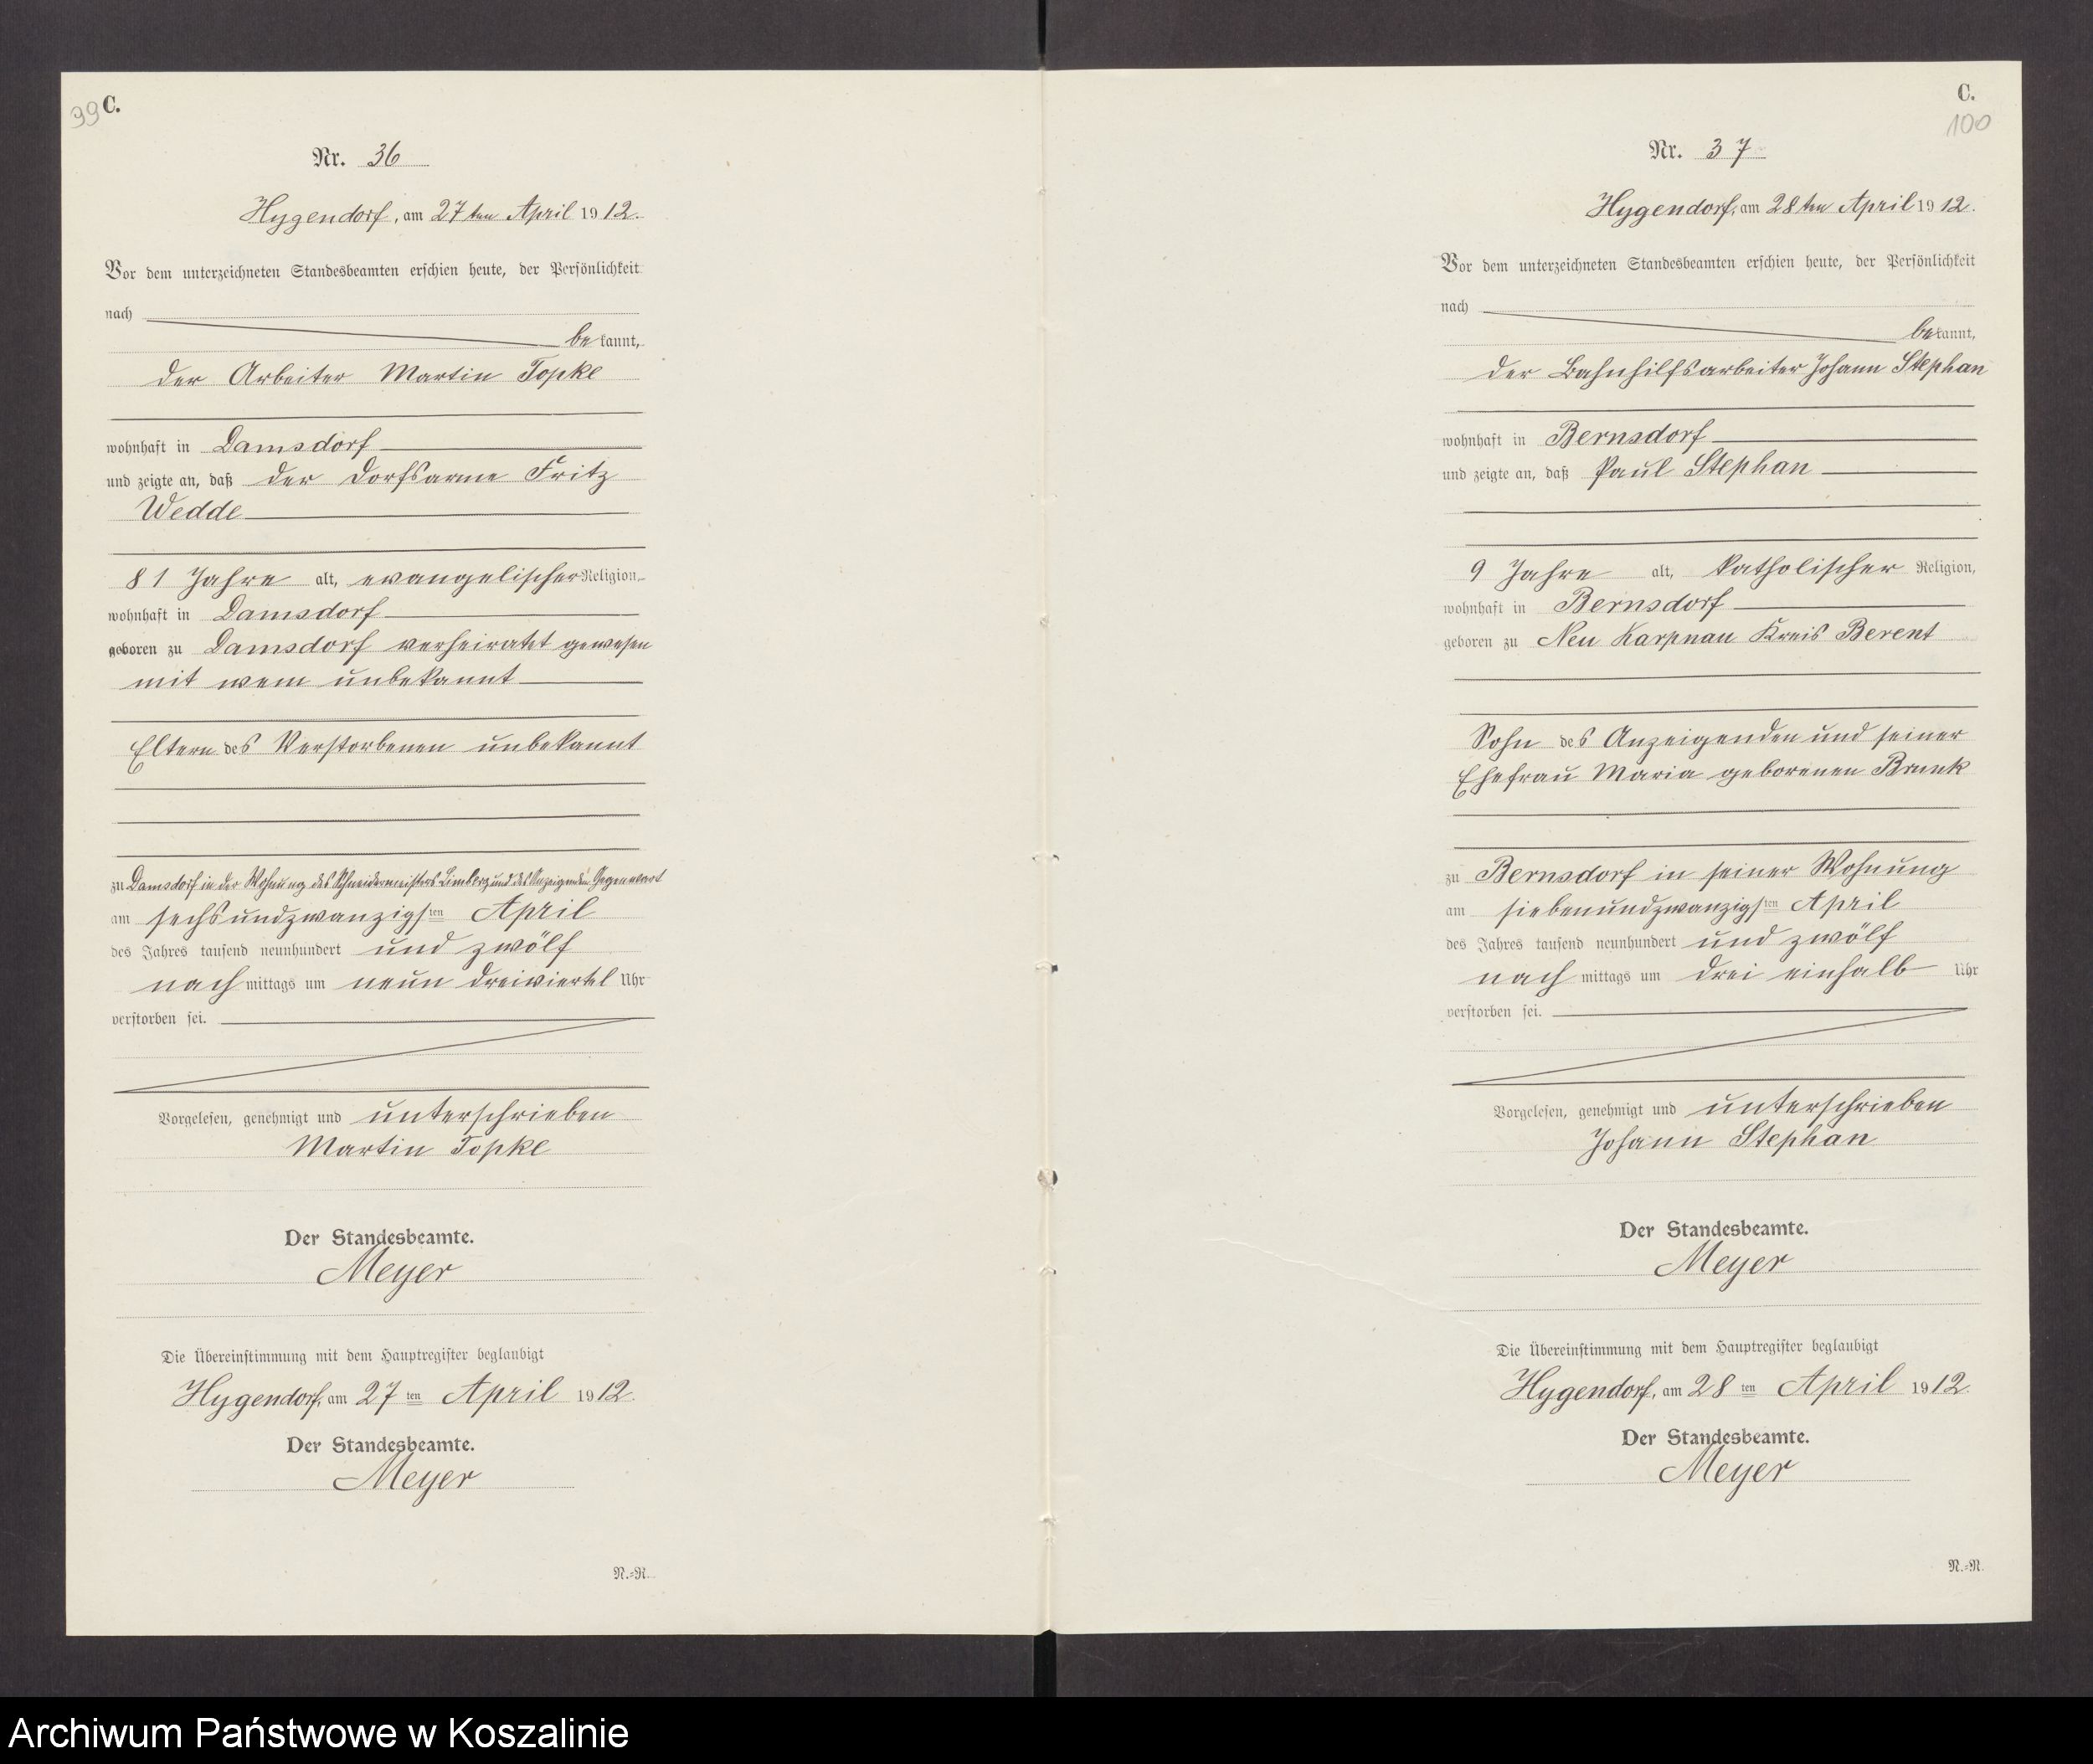 99 C.
Nr. 36
Hygendorf, am 27ten April 1912.
Vor dem unterzeichneten Standesbeamten erschien heute, der Persönlichkeit
nach
bekannt,
der Arbeiter Martin Topke
wohnhaft in Damsdorf
und zeigte an, daß der Dorfsarme Fritz
Wedde
81 Jahre alt, evangelischer Religion,
wohnhaft in Damsdorf
geboren zu Damsdorf verheiratet gewesen
mit wem unbekannt
Eltern des Verstorbenen unbekannt
zu Damsdorf in der Wohnung des Schneidermeisters und des Anzeigenden Gegenwart
am sechsundzwanzigsten April
des Jahres tausend neunhundert und zwölf
nachmittags um neun dreiviertel Uhr
verstorben sei.
Vorgelesen, genehmigt und unterschrieben
Martin Topke
Der Standesbeamte.
Meyer
Die Übereinstimmung mit dem Hauptregister beglaubigt
Hygendorf, am 27ten April 1912.
Der Standesbeamte.
Meyer
N.=R.
C.
100
Nr. 37
Hygendorf, am 28ten April 1912.
Vor dem unterzeichneten Standesbeamten erschien heute, der Persönlichkeit
nach
bekannt,
der Bahnhilfsarbeiter Johann Stephan
wohnhaft in Bernsdorf
und zeigte an, daß Paul Stephan
9 Jahre alt, katholischer Religion,
wohnhaft in Bernsdorf
geboren zu Neu Karpnau Kreis Berent
Sohn des Anzeigenden und seiner
Ehefrau Maria geborenen Brunk
zu Bernsdorf in seiner Wohnung
am siebenundzwanzigsten April
des Jahres tausend neunhundert und zwölf
nachmittags um drei einhalb Uhr
verstorben sei.
Vorgelesen, genehmigt und unterschrieben
Johann Stephan
Der Standesbeamte.
Meyer
Die Übereinstimmung mit dem Hauptregister beglaubigt
Hygendorf, am 28ten April 1912.
Der Standesbeamte.
Meyer
N.=R.
Archiwum Państwowe w Koszalinie